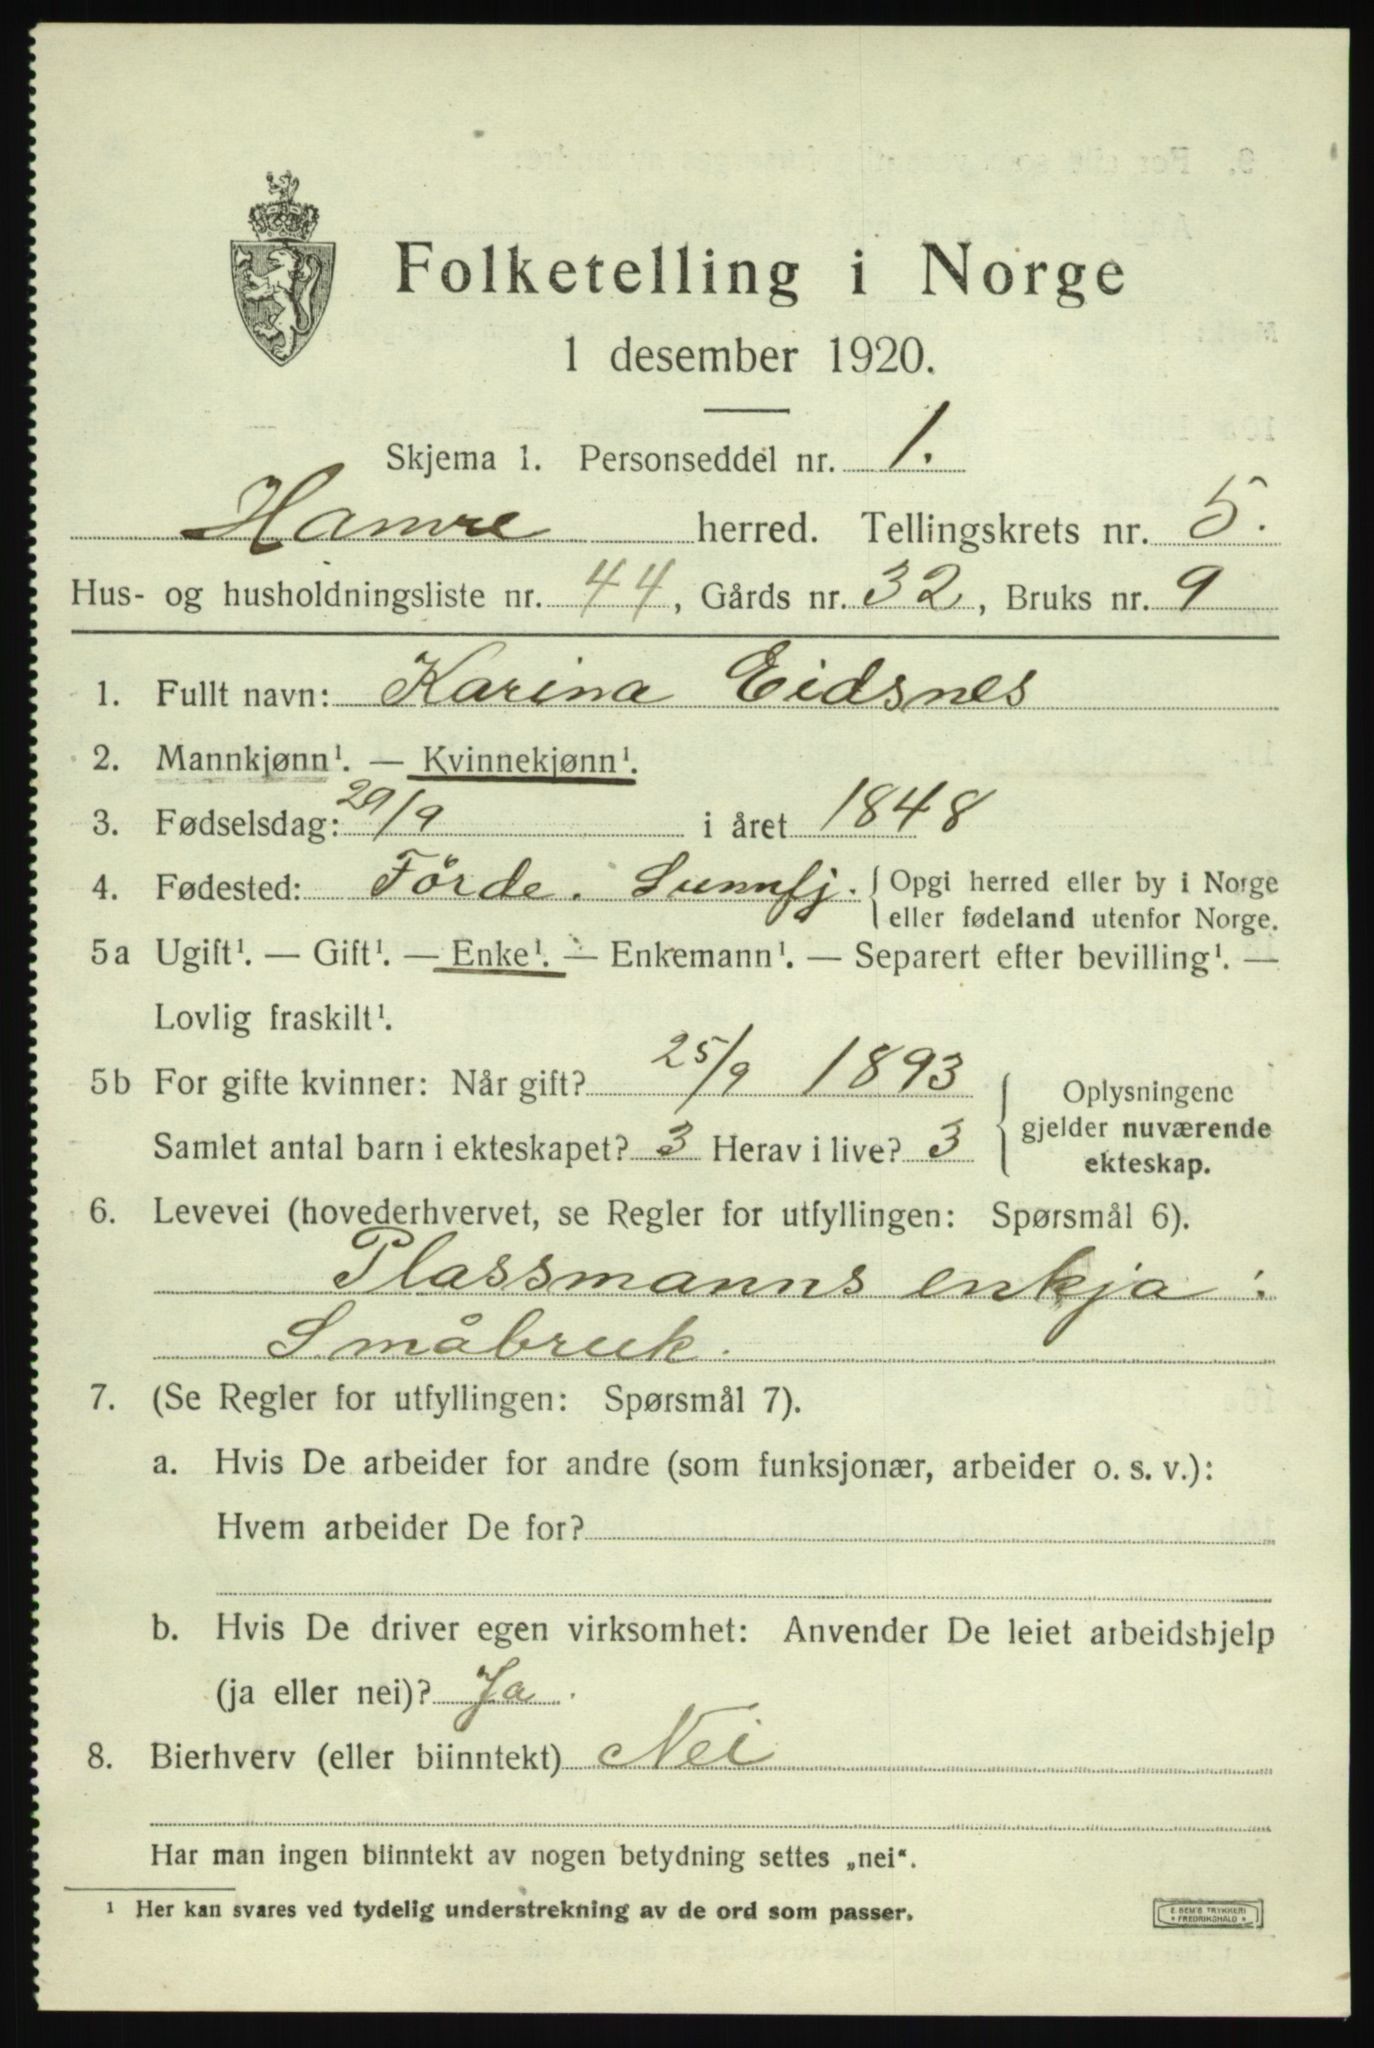 Folketelling i Norge
1 desember 1920.
Skjema 1. Personseddel nr. 1.
Hamre herred. Tellingskrets nr. 5.
Hus- og husholdningsliste nr. 44, Gårds nr. 32, Bruks nr. 9
1. Fullt navn: Karina Eidsnes
2. Mannkjønn¹. — Kvinnekjønn¹.
3. Fødselsdag: 29/9 i året 1848
4. Fødested: Förde. Sunnfj. { Opgi herred eller by i Norge
eller fødeland utenfor Norge.
5a Ugift¹. — Gift¹. — Enke¹. — Enkemann¹. — Separert efter bevilling¹. —
Lovlig fraskilt¹.
5b For gifte kvinner: Når gift? 25/9 1893
Samlet antal barn i ekteskapet? 3 Herav i live? 3
{ Oplysningene
gjelder nuværende
ekteskap.
6. Levevei (hovederhvervet, se Regler for utfyllingen: Spørsmål 6).
Plassmanns enkja :
Småbruk.
7. (Se Regler for utfyllingen: Spørsmål 7).
a. Hvis De arbeider for andre (som funksjonær, arbeider o. s. v.):
Hvem arbeider De for?
b. Hvis De driver egen virksomhet: Anvender De leiet arbeidshjelp
(ja eller nei)? Ja.
8. Bierhverv (eller biinntekt) Nei
Har man ingen biinntekt av nogen betydning settes „nei“.
¹ Her kan svares ved tydelig understrekning av de ord som passer.
E. SEM'S TRYKKERI
* FREDRIKSHALD *